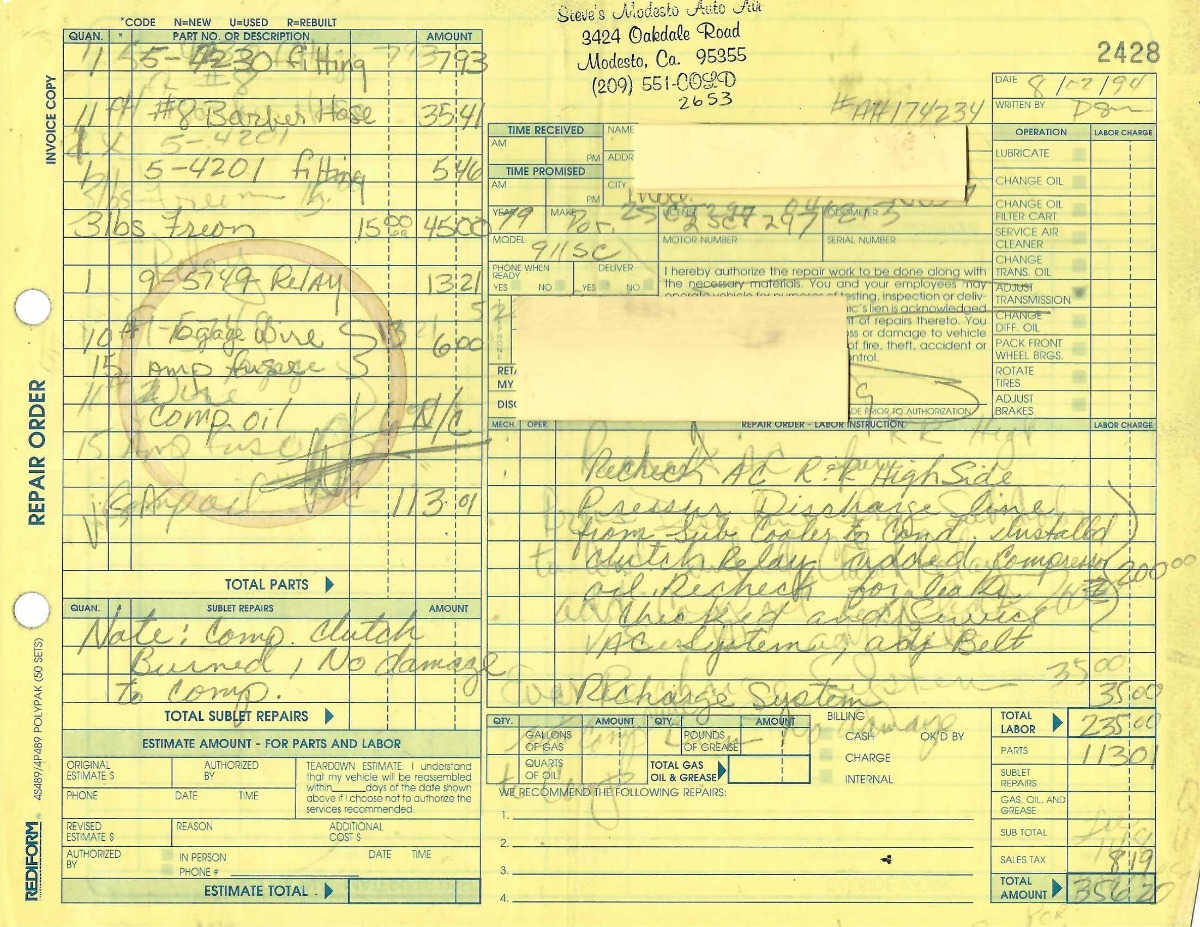 *CODE N=NEW U=USED R=REBUILT
Steve's Modesto Auto Air
3424 Oakdale Road
Modesto, Ca. 95355
(209) 551-COLD
2653
2428
INVOICE COPY
REPAIR ORDER
REDIFORM ® 4S489/4P489 POLYPAK (50 SETS)
QUAN. * PART NO. OR DESCRIPTION AMOUNT
1 5-4230 fitting 7 93
#8 Barrier Hose 35 41
1 5-4201 fitting 5 46
3lbs. Freon 15 00 ea 45 00
1 9-5749 Relay 13 21
10 ft 6 00
15 amp
Comp. oil N/C
113 01
TOTAL PARTS
QUAN. SUBLET REPAIRS AMOUNT
Note: Comp. Clutch
Burned, No damage
to comp.
TOTAL SUBLET REPAIRS
ESTIMATE AMOUNT - FOR PARTS AND LABOR
ORIGINAL ESTIMATE $ AUTHORIZED BY
PHONE DATE TIME
TEARDOWN ESTIMATE. I understand
that my vehicle will be reassembled
within____days of the date shown
above if I choose not to authorize the
services recommended.
REVISED ESTIMATE $ REASON ADDITIONAL COST $
AUTHORIZED BY IN PERSON DATE TIME
PHONE #
ESTIMATE TOTAL
DATE 8/02/94
WRITTEN BY
#AH174234
TIME RECEIVED NAME
AM PM ADDR
TIME PROMISED
AM PM CITY
YEAR 79 MAKE Por. LICENSE ODOMETER
MODEL 911SC MOTOR NUMBER SERIAL NUMBER
PHONE WHEN READY DELIVER
YES NO YES NO
I hereby authorize the repair work to be done along with
the necessary materials. You and your employees may
operate vehicle for purposes of testing, inspection or deliv-
ic's lien is acknowledged
t of repairs thereto. You
ss or damage to vehicle
of fire, theft, accident or
ontrol.
RETA
MY
DISC
DE PRIOR TO AUTHORIZATION
OPERATION LABOR CHARGE
LUBRICATE
CHANGE OIL
CHANGE OIL FILTER CART.
SERVICE AIR CLEANER
CHANGE TRANS. OIL
ADJUST TRANSMISSION
CHANGE DIFF. OIL
PACK FRONT WHEEL BRGS.
ROTATE TIRES
ADJUST BRAKES
MECH. OPER. REPAIR ORDER - LABOR INSTRUCTION LABOR CHARGE
Recheck AC R+R High Side
Pressur Discharge Line
from Sub Cooler to Cond. Installed
Clutch Relay, added Compressor
oil. Recheck for leaks 200 00
Checked and Service
VAC System, adj Belt
Recharge System 35 00
QTY. AMOUNT QTY. AMOUNT
GALLONS OF GAS POUNDS OF GREASE
QUARTS OF OIL TOTAL GAS OIL & GREASE
BILLING
CASH OK'D BY
CHARGE
INTERNAL
WE RECOMMEND THE FOLLOWING REPAIRS:
1.
2.
3.
4.
TOTAL LABOR 235 00
PARTS 113 01
SUBLET REPAIRS
GAS, OIL, AND GREASE
SUB TOTAL
SALES TAX 8 19
TOTAL AMOUNT 356 20